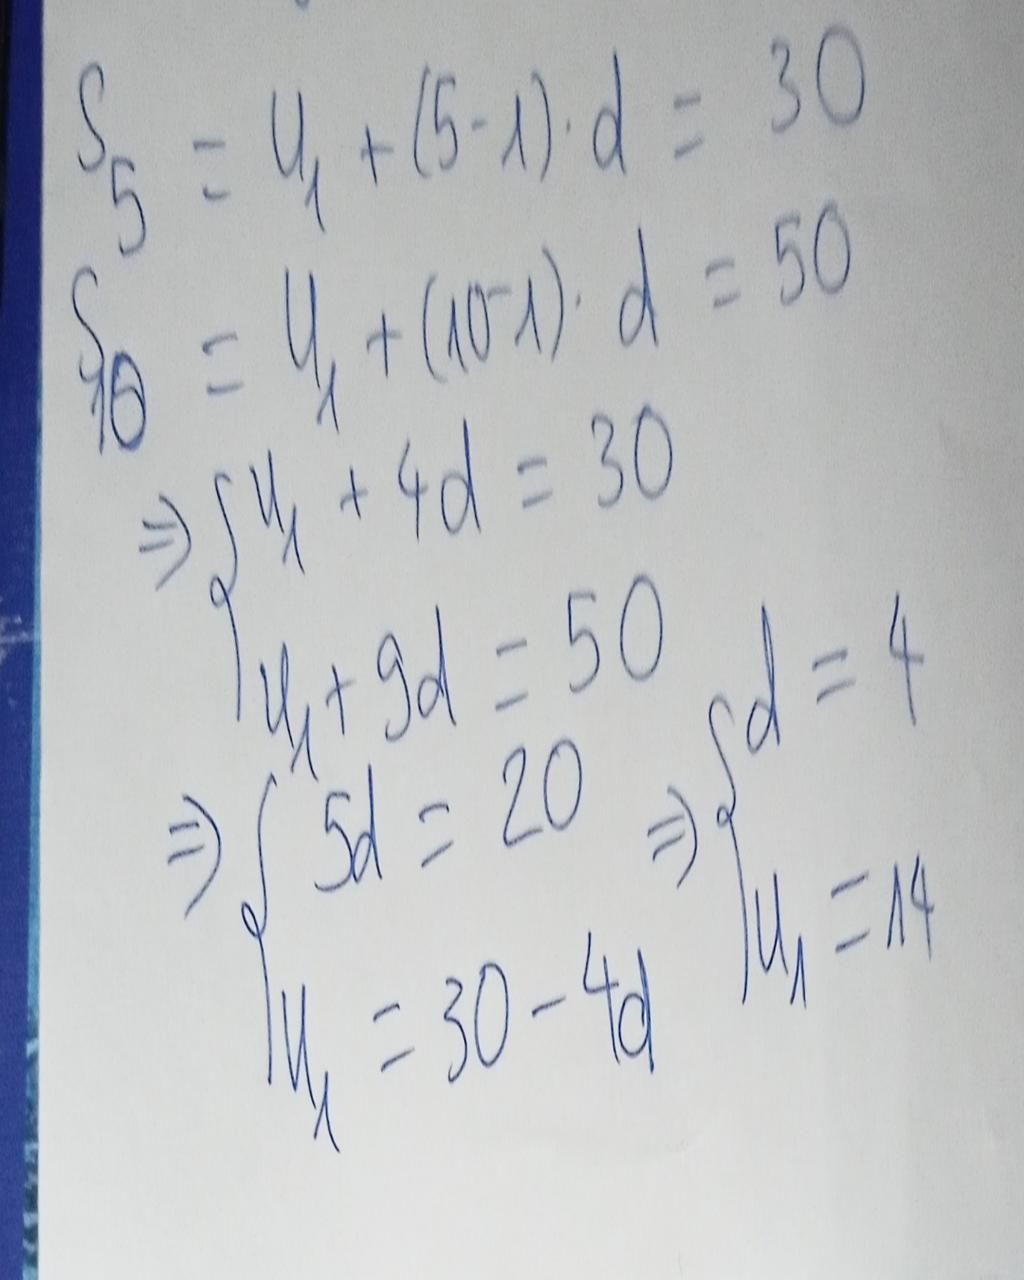 S₅ = u₁ + (5-1)·d = 30
S₁₀ = u₁ + (10-1)·d = 50
⇒ { u₁ + 4d = 30
u₁ + 9d = 50
⇒ { 5d = 20 ⇒ { d = 4
u₁ = 30 - 4d u₁ = 14